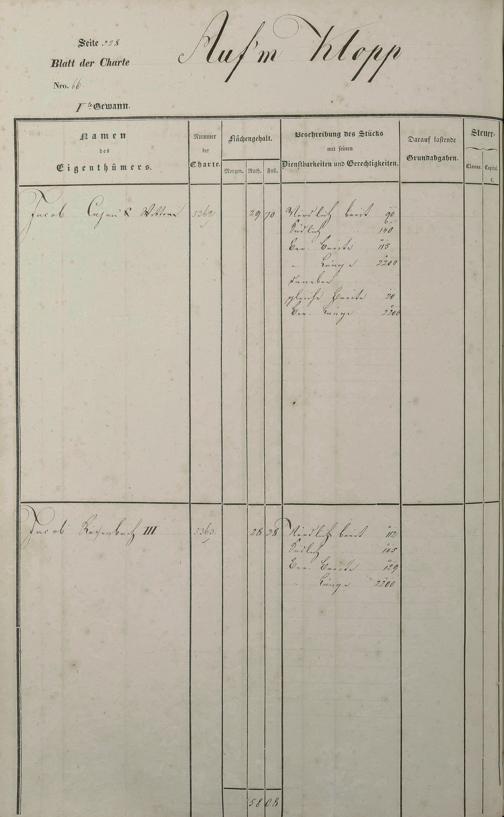 Seite 228
Auf'm Klopp
Blatt der Charte
Nro. 66
Iᵗᵉ Gewann.
Namen des Eigenthümers.
Nummer der Charte.
Flächengehalt.
Morgen. Ruth. Fuß.
Beschreibung des Stücks mit seinen Dienstbarkeiten und Gerechtigkeiten.
Darauf lastende Grundabgaben.
Steuer-
Classe. Capital.
Jacob Wittwe 29 70 Nördlich breit 90
Südlich 140
Ger. Breite 115
" Länge 2200
gleiche Breite 20
Ger. Länge 2200
Jacob III 3363 28 38 Nördlich breit 112
Südlich
Ger. Breite 129
" Länge 2200
58 08